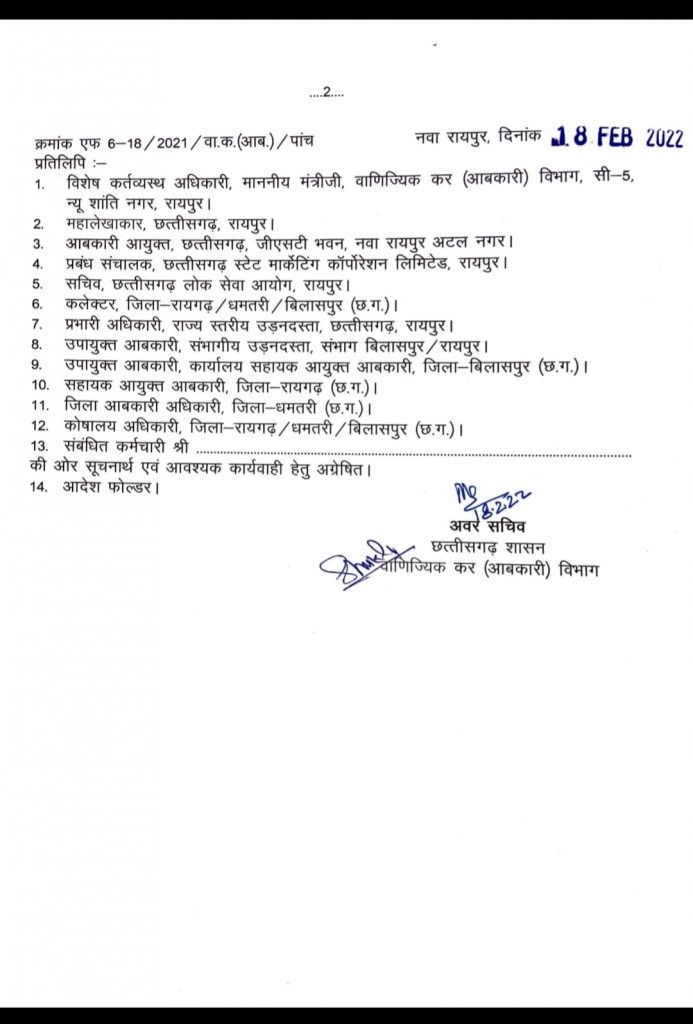 ....2....
क्रमांक एफ 6–18/2021/वा.क.(आब.)/पांच नवा रायपुर, दिनांक 18 FEB 2022
प्रतिलिपि :–
1. विशेष कर्तव्यस्थ अधिकारी, माननीय मंत्रीजी, वाणिज्यिक कर (आबकारी) विभाग, सी–5,
न्यू शांति नगर, रायपुर।
2. महालेखाकार, छत्तीसगढ़, रायपुर।
3. आबकारी आयुक्त, छत्तीसगढ़, जीएसटी भवन, नवा रायपुर अटल नगर।
4. प्रबंध संचालक, छत्तीसगढ़ स्टेट मार्केटिंग कॉर्पोरेशन लिमिटेड, रायपुर।
5. सचिव, छत्तीसगढ़ लोक सेवा आयोग, रायपुर।
6. कलेक्टर, जिला–रायगढ़/धमतरी/बिलासपुर (छ.ग.)।
7. प्रभारी अधिकारी, राज्य स्तरीय उड़नदस्ता, छत्तीसगढ़, रायपुर।
8. उपायुक्त आबकारी, संभागीय उड़नदस्ता, संभाग बिलासपुर/रायपुर।
9. उपायुक्त आबकारी, कार्यालय सहायक आयुक्त आबकारी, जिला–बिलासपुर (छ.ग.)।
10. सहायक आयुक्त आबकारी, जिला–रायगढ़ (छ.ग.)।
11. जिला आबकारी अधिकारी, जिला–धमतरी (छ.ग.)।
12. कोषालय अधिकारी, जिला–रायगढ़/धमतरी/बिलासपुर (छ.ग.)।
13. संबंधित कर्मचारी श्री ....................................................................................
की ओर सूचनार्थ एवं आवश्यक कार्यवाही हेतु अग्रेषित।
14. आदेश फोल्डर।
18.2.22
अवर सचिव
छत्तीसगढ़ शासन
वाणिज्यिक कर (आबकारी) विभाग